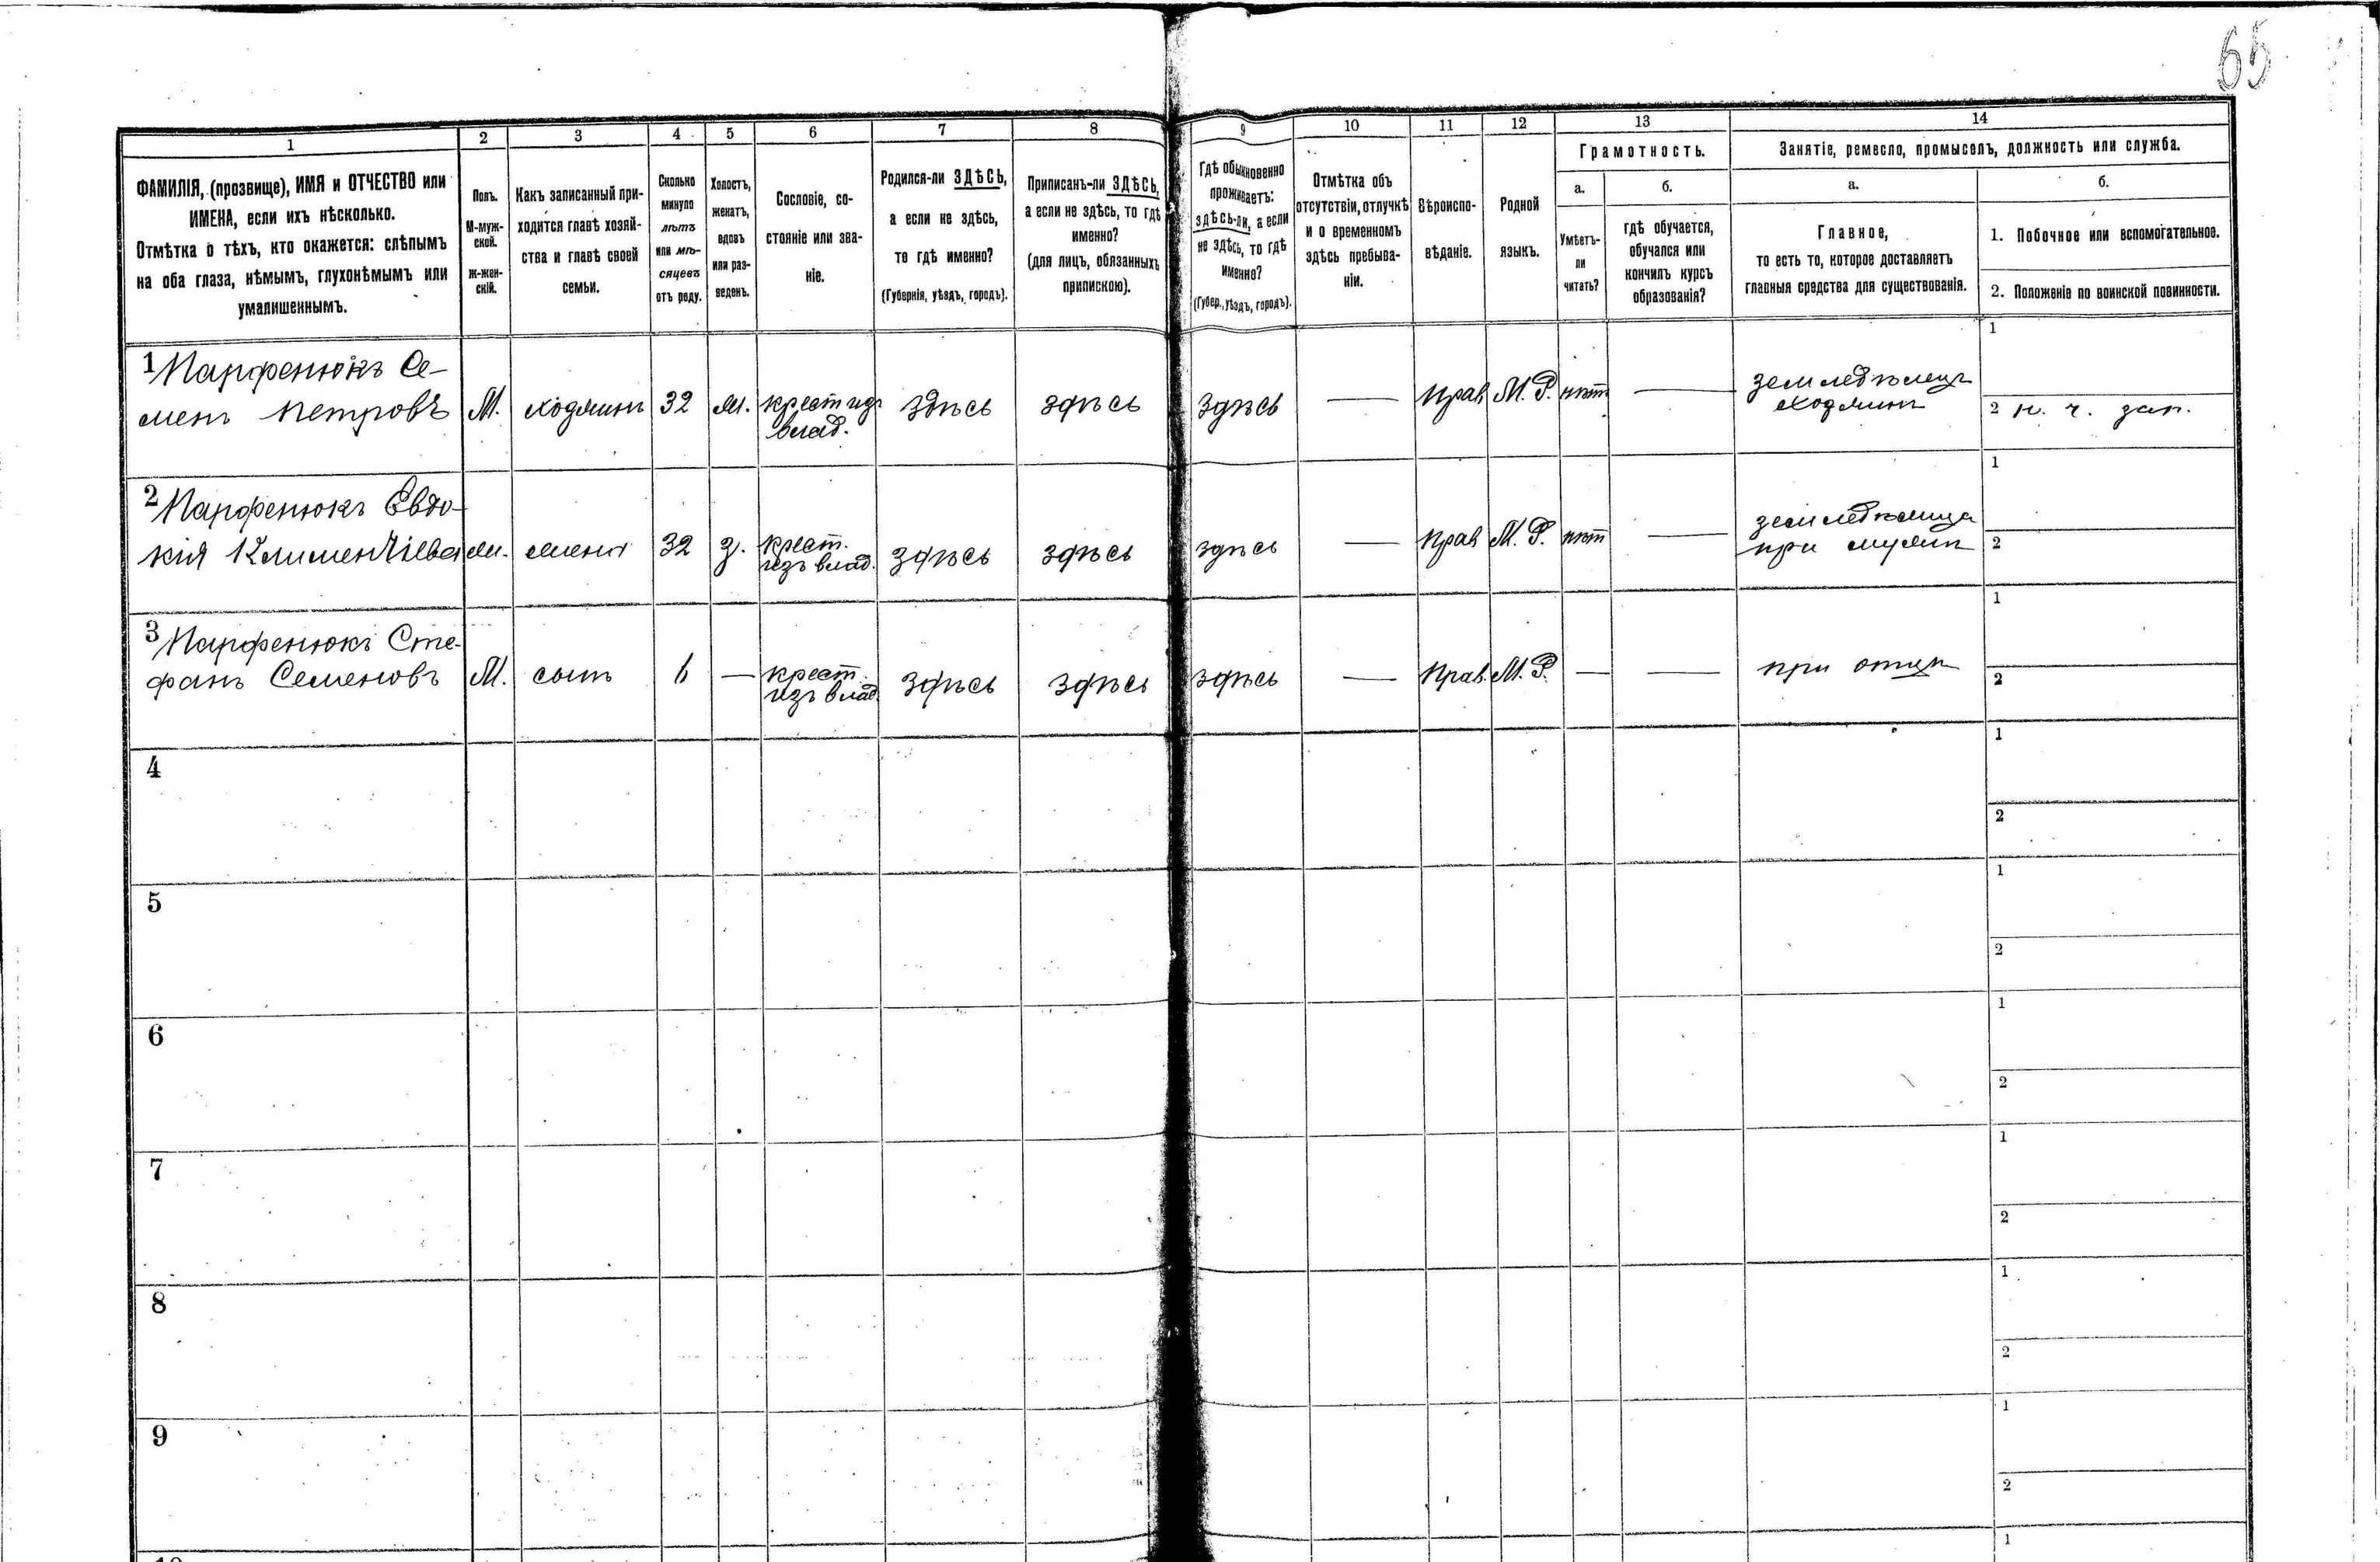 65
1 2 3 4 5 6 7 8 9 10 11 12 13 14
ФАМИЛІЯ, (прозвище), ИМЯ и ОТЧЕСТВО или
ИМЕНА, если ихъ нѣсколько.
Отмѣтка о тѣхъ, кто окажется: слѣпымъ
на оба глаза, нѣмымъ, глухонѣмымъ или
умалишеннымъ.
Полъ.
М-муж-
ской.
Ж-жен-
скій.
Какъ записанный при-
ходится главѣ хозяй-
ства и главѣ своей
семьи.
Сколько
минуло
лѣтъ
или мѣ-
сяцевъ
отъ роду.
Холостъ,
женатъ,
вдовъ
или раз-
веденъ.
Сословіе, со-
стояніе или зва-
ніе.
Родился-ли ЗДѢСЬ,
а если не здѣсь,
то гдѣ именно?
(Губернія, уѣздъ, городъ).
Приписанъ-ли ЗДѢСЬ,
а если не здѣсь, то гдѣ
именно?
(для лицъ, обязанныхъ
припискою).
Гдѣ обыкновенно
проживаетъ:
здѣсь-ли, а если
не здѣсь, то гдѣ
именно?
(Губер., уѣздъ, городъ).
Отмѣтка объ
отсутствіи, отлучкѣ
и о временномъ
здѣсь пребыва-
ніи.
Вѣроиспо-
вѣданіе.
Родной
языкъ.
Грамотность.
а.
Умѣетъ-
ли
читать?
б.
гдѣ обучается,
обучался или
кончилъ курсъ
образованія?
Занятіе, ремесло, промыселъ, должность или служба.
а.
Главное,
то есть то, которое доставляетъ
главныя средства для существованія.
б.
1. Побочное или вспомогательное.
2. Положеніе по воинской повинности.
1 Парфенюкъ Се-
менъ Петровъ
М.
хозяинъ
32
ж.
крест изъ
влад.
здѣсь
здѣсь
здѣсь
—
Прав
М. Р.
нѣт
—
земледѣлецъ
хозяинъ
1
2 н. ч. зап.
2 Парфенюкъ Евдо-
кія Климентіева
ж.
жена
32
з.
крест.
изъ влад.
здѣсь
здѣсь
здѣсь
—
Прав
М. Р.
нѣт
—
земледѣлица
при мужѣ
1
2
3 Парфенюкъ Сте-
фанъ Семеновъ
М.
сынъ
6
—
крест.
изъ влад
здѣсь
здѣсь
здѣсь
—
Прав.
М. Р.
—
—
при отцѣ
1
2
4
1
2
5
1
2
6
1
2
7
1
2
8
1
2
9
1
2
1